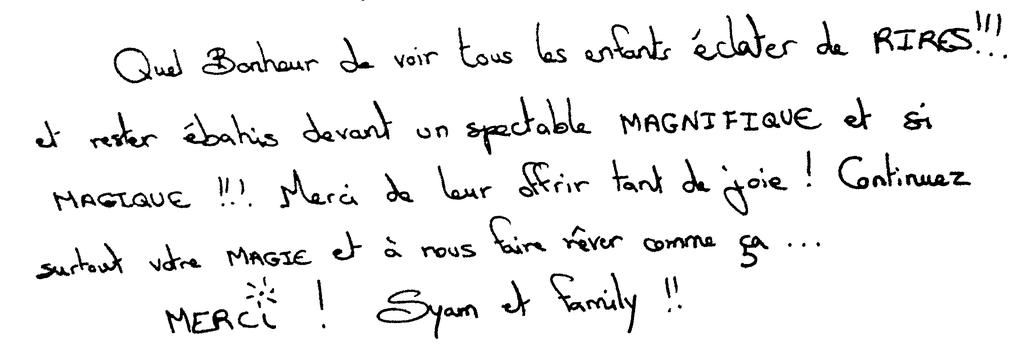 Quel Bonheur de voir tous les enfants éclater de RIRES!!!
et rester ébahis devant un spectable MAGNIFIQUE et si
MAGIQUE !!! Merci de leur offrir tant de joie ! Continuez
surtout votre MAGIE et à nous faire rêver comme ça ...
MERCi ! Syam et family !!